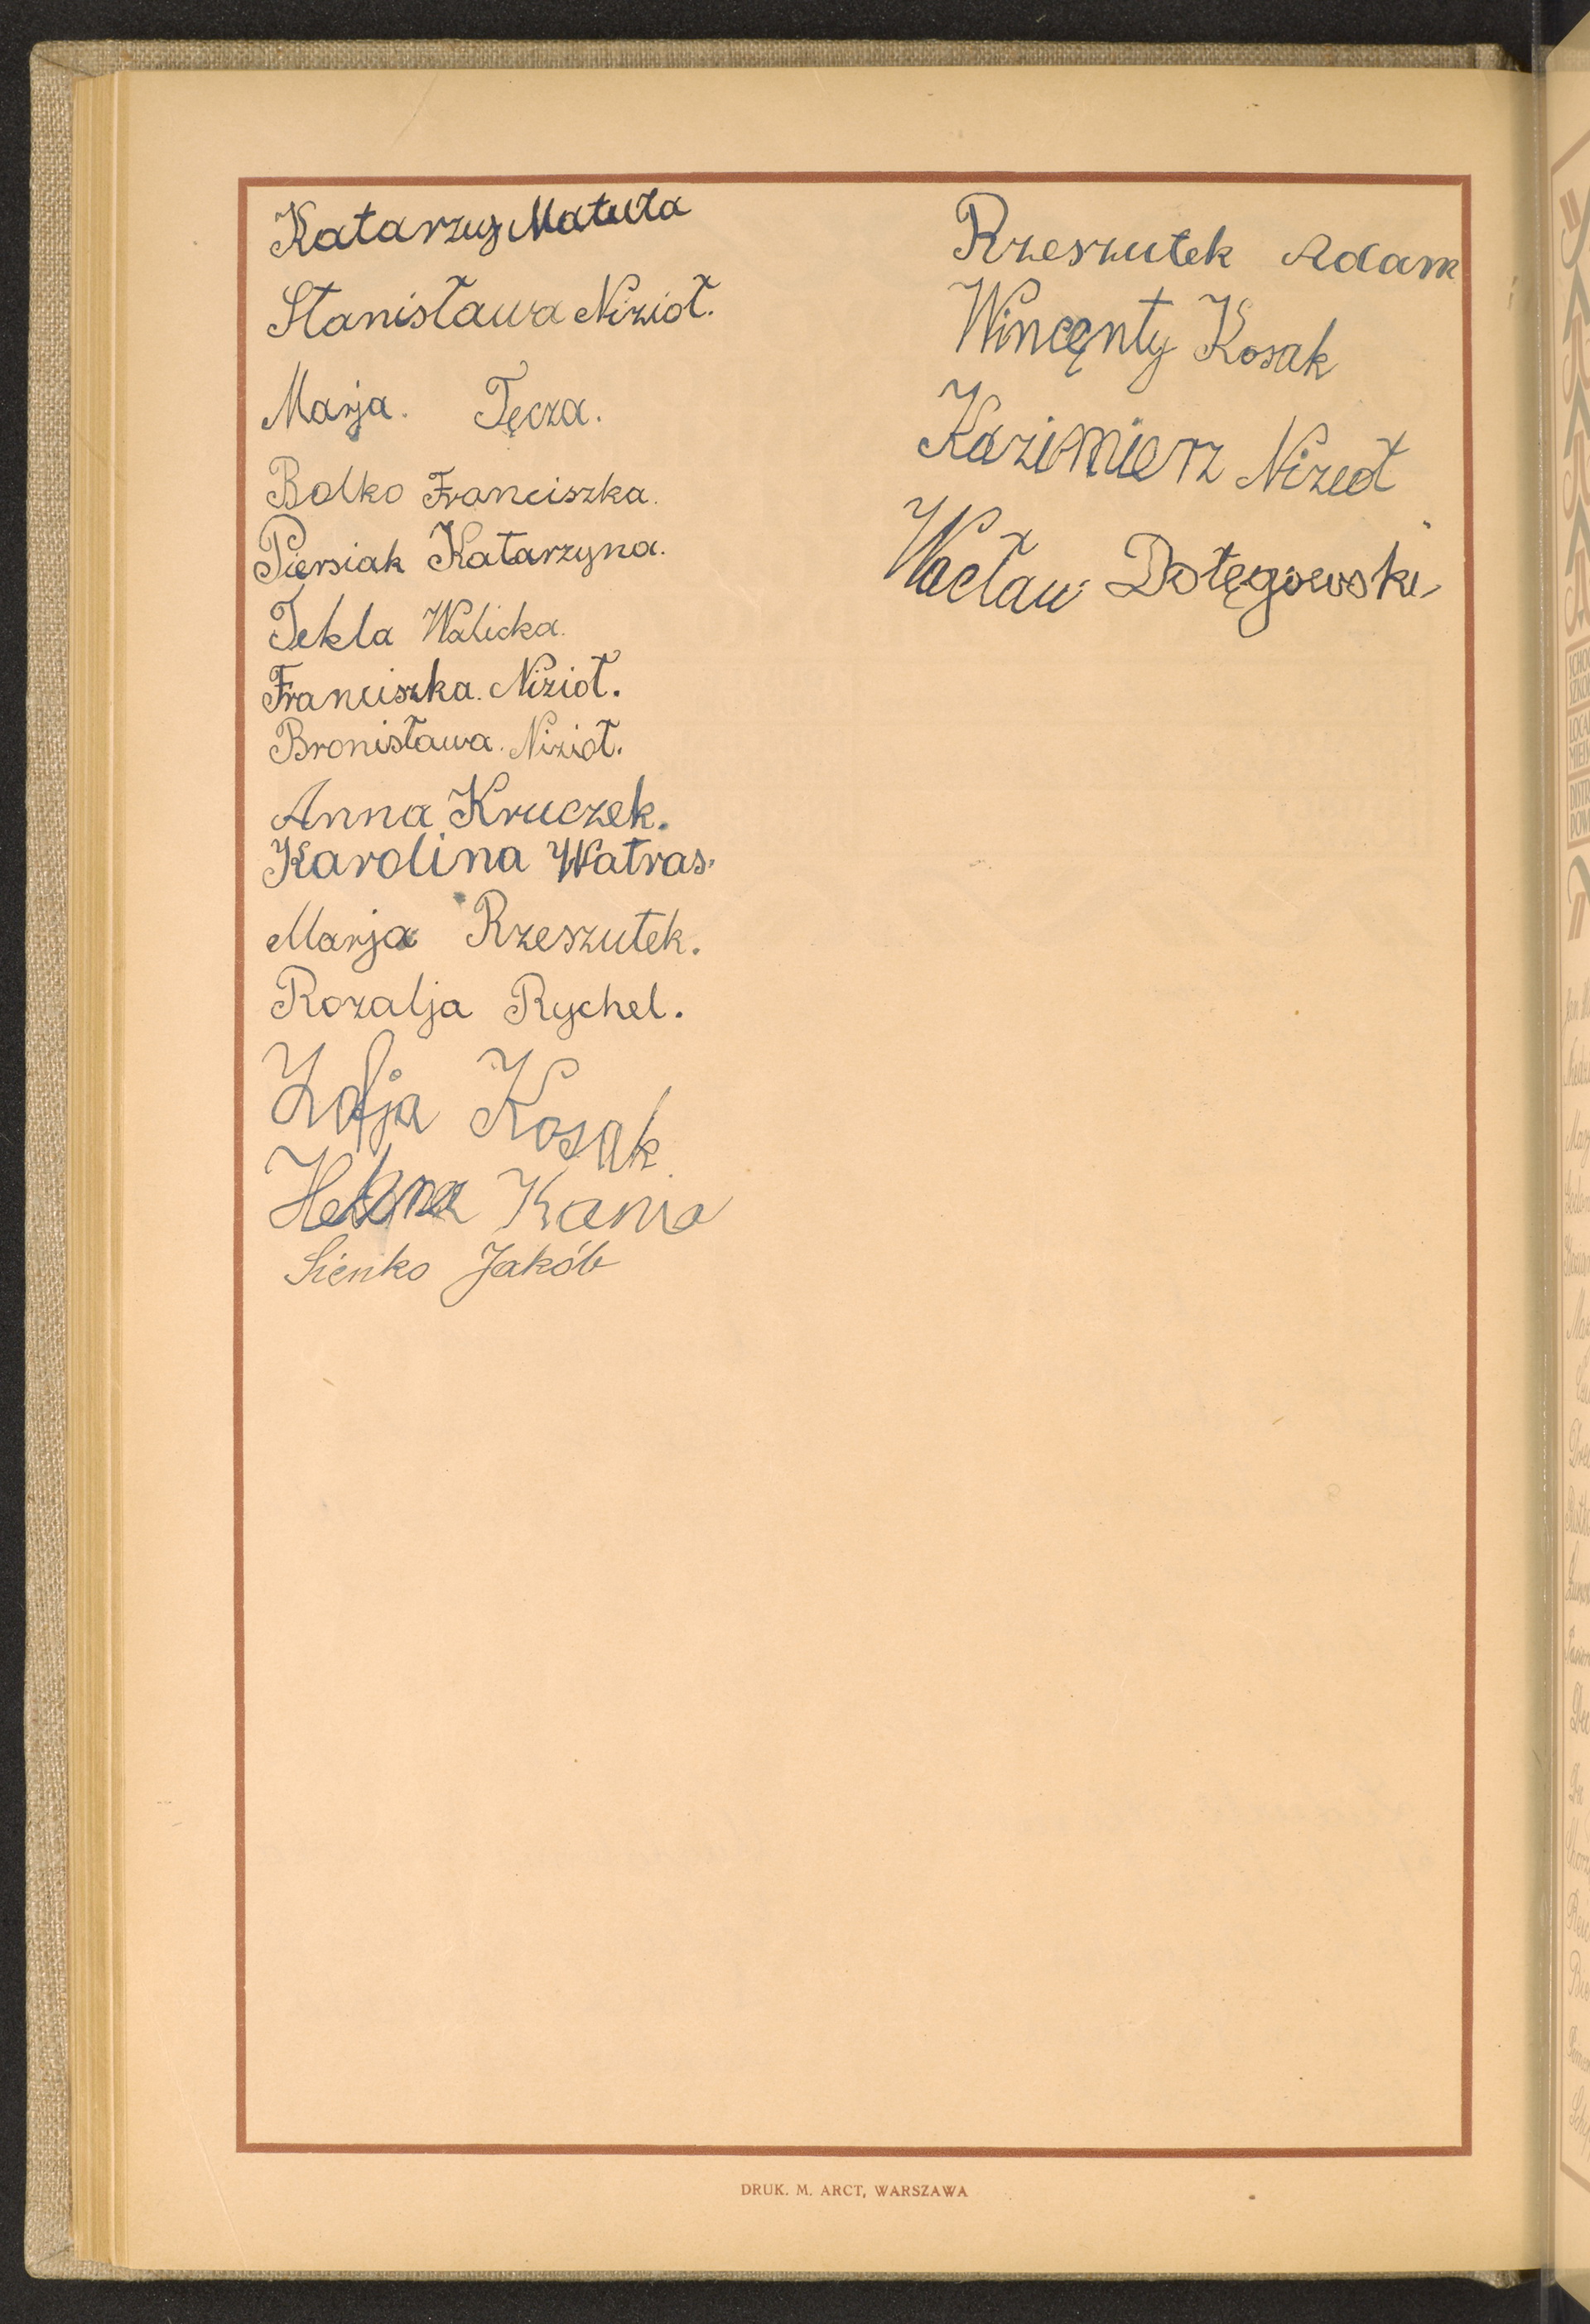 Katarzyę Matuła
Stanisława Nizioł.
Marja. Tęcza.
Bolko Franciszka.
Piersiak Katarzyna.
Tekla Walicka.
Franciszka. Nizioł.
Bronisława. Nizioł.
Anna Kruczek.
Karolina Watras.
Marja Rzeszutek.
Rozalja Rychel.
Zofja Kosak
Helena Kania
Sieńko Jakób
Rzeszutek Adam
Wincęnty Kosak
Kazimierz Nizioł
Wacław Dołęgowski
DRUK. M. ARCT, WARSZAWA